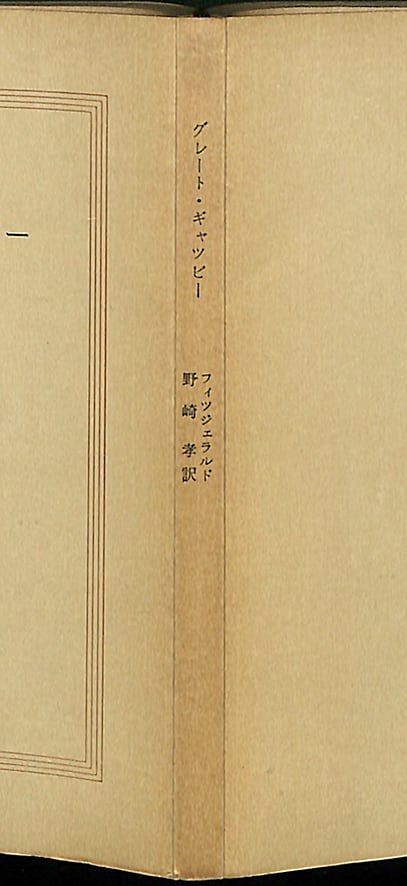 グレート・ギャツビー
フィツジェラルド
野崎孝訳
ー